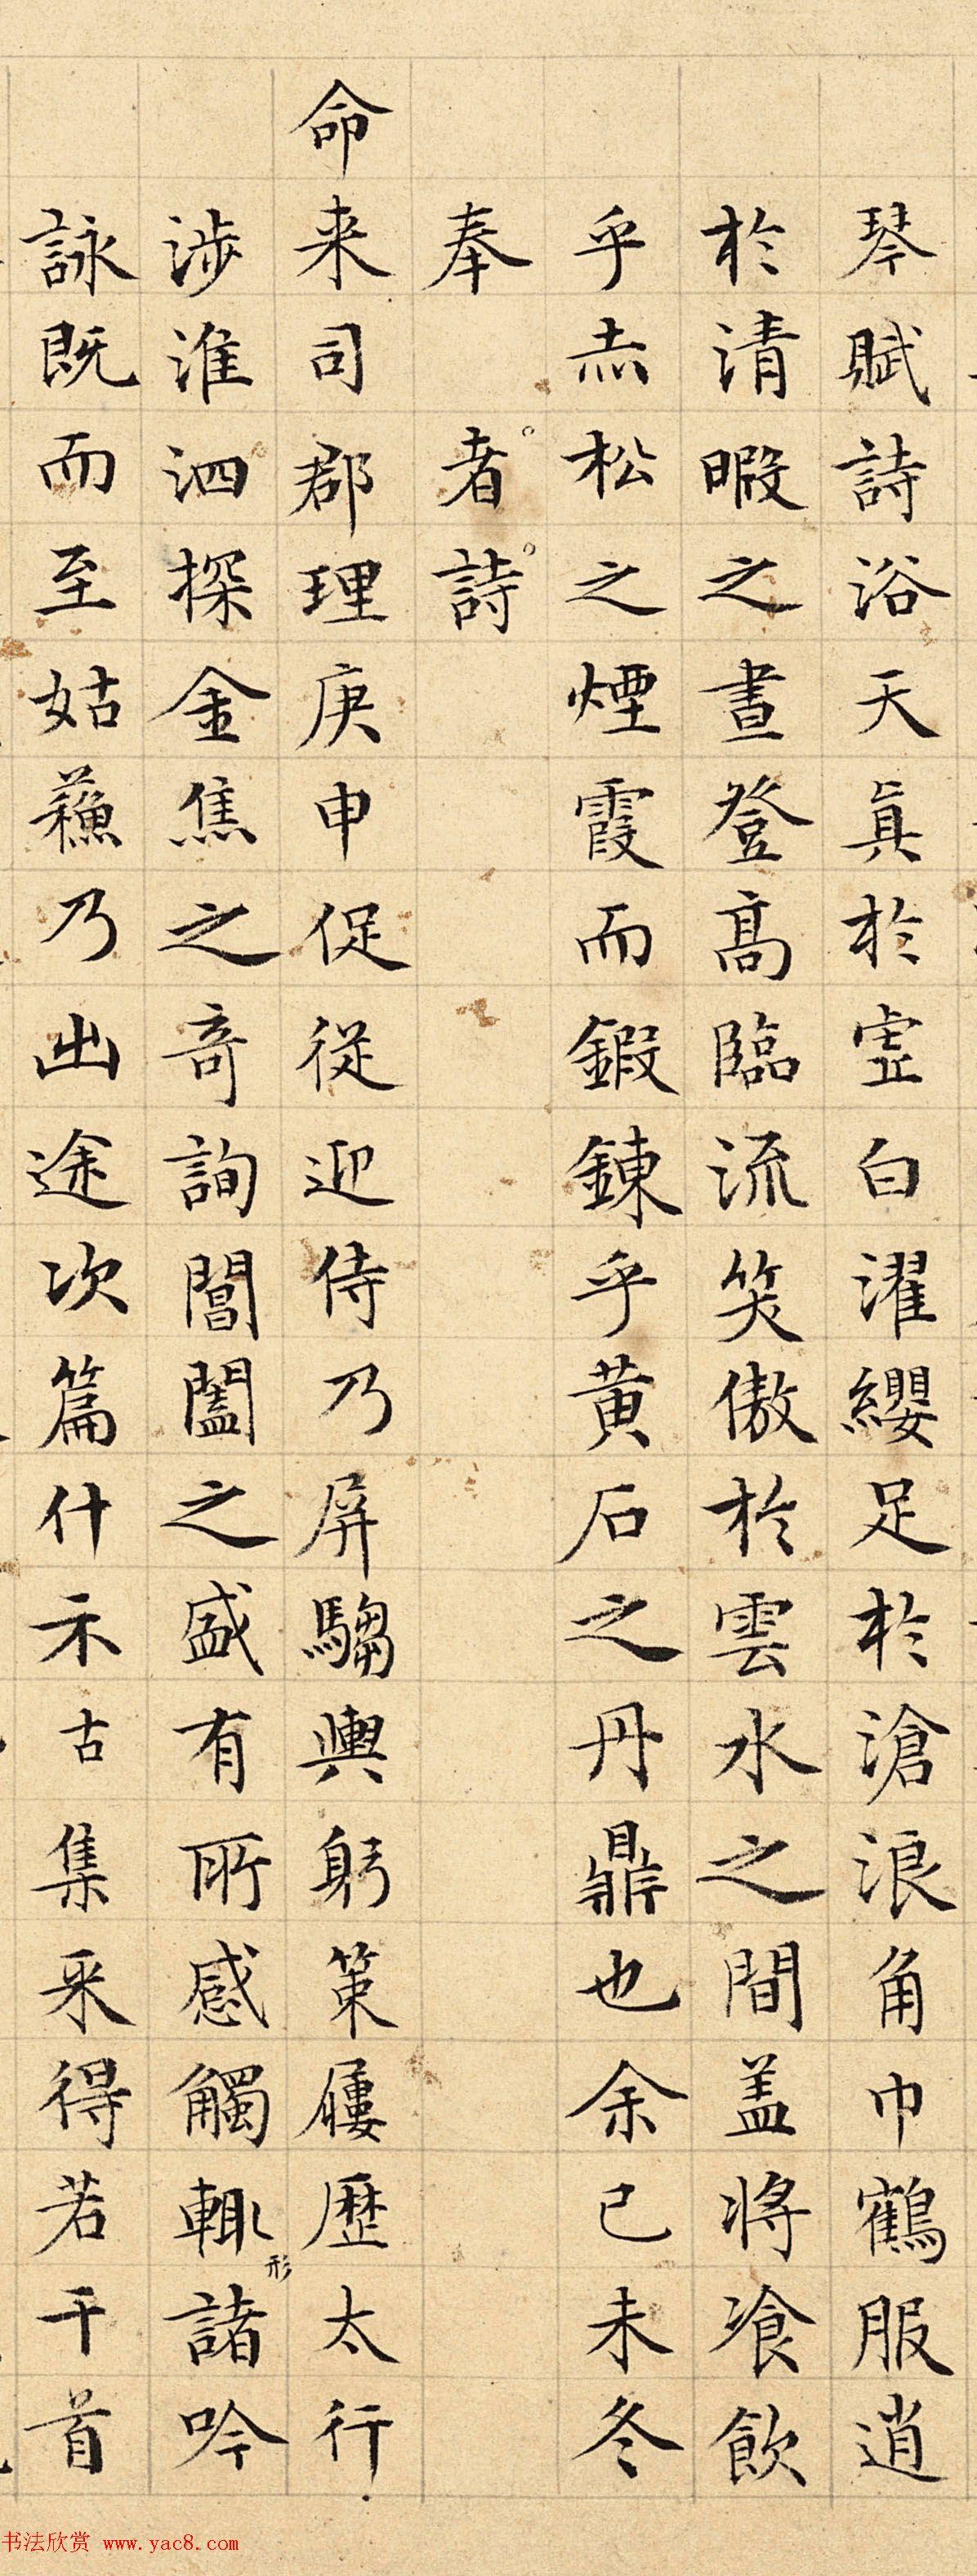 琴賦詩浴天真於虛白濯纓足於滄浪角巾鶴服逍
於清暇之晝登高臨流笑傲於雲水之間蓋將飡飲
乎赤松之煙霞而鍛鍊乎黄石之丹鼎也余己未冬
奉 者詩
命来司郡理庚申促從迎侍乃屏騶輿躬策屨歷太行
涉淮泗探金焦之奇詢閶闔之盛有所感觸輒形諸吟
詠既而至姑蘓乃出途次篇什示古集采得若干首
书法欣赏 www.yac8.com